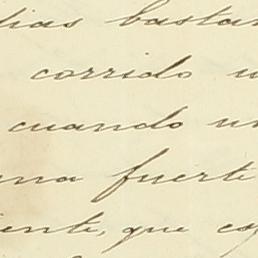 dias bastan
corrido u
cuando un
una fuerte
iente, que co